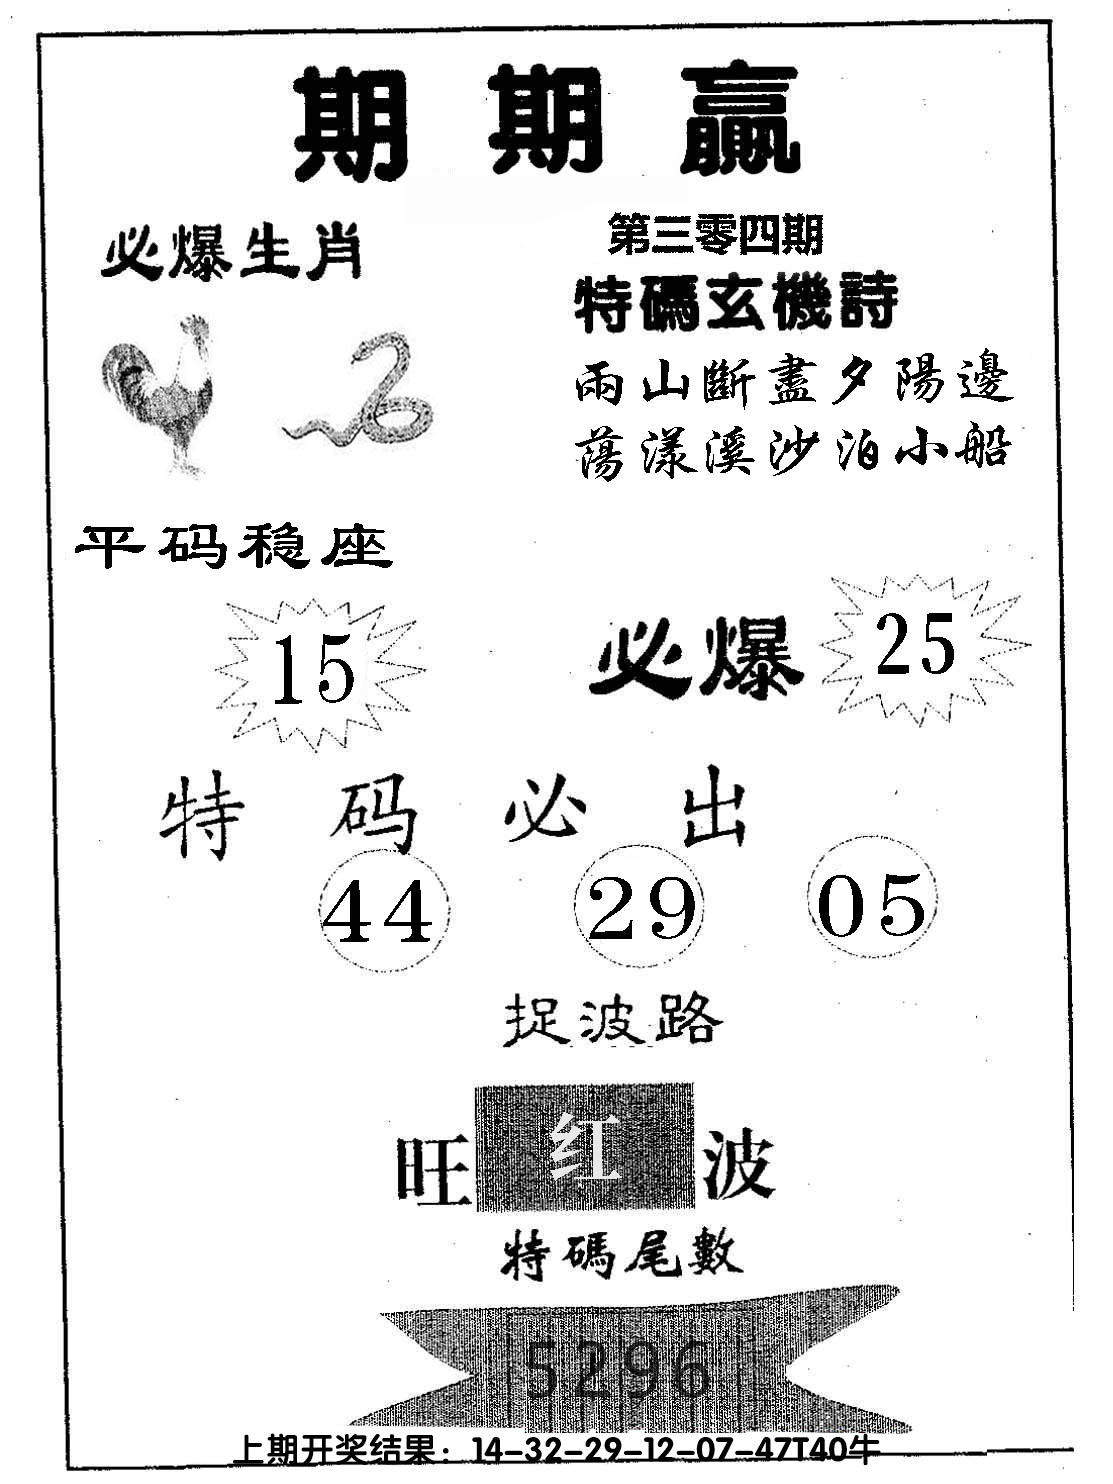 期期赢
必爆生肖
第三零四期
特碼玄機詩
兩山斷盡夕陽邊
蕩漾溪沙泊小船
平码稳座
15
必爆 25
特码必出
44 29 05
捉波路
旺红波
特碼尾數
5296
上期开奖结果：14-32-29-12-07-47T40牛